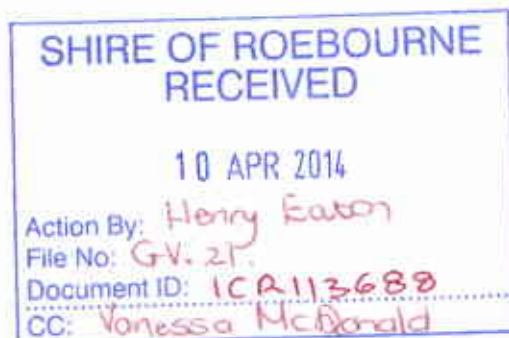 SHIRE OF ROEBOURNE
RECEIVED
10 APR 2014
Action By: Henry Eaton
File No: GV.21.
Document ID: ICR113688
CC: Vanessa McDonald